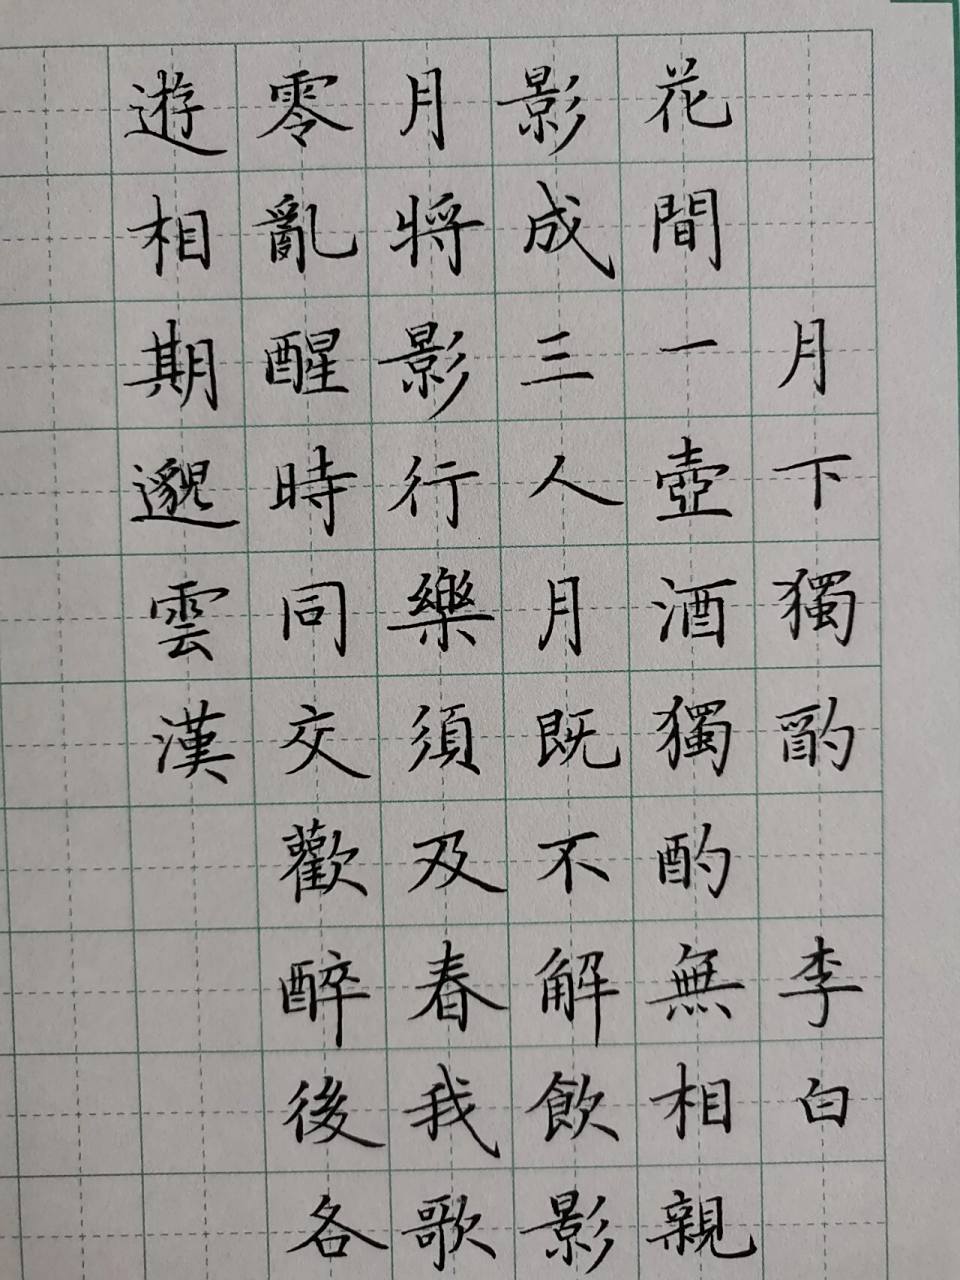 月下獨酌 李白
花間一壺酒獨酌無相親
影成三人月既不解飲影
月將影行樂須及春我歌
零亂醒時同交歡醉後各
遊相期邈雲漢